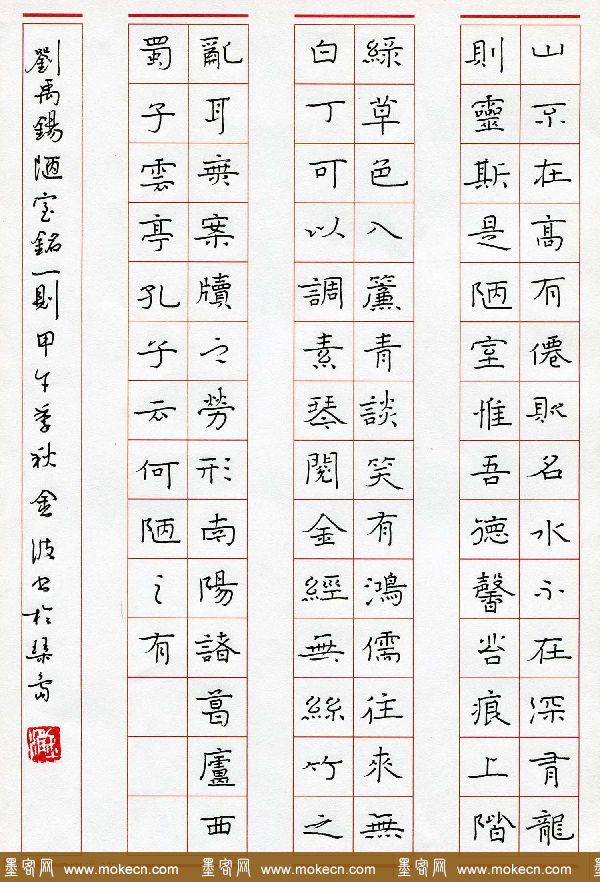 山不在高有僊則名水不在深有龍
則靈斯是陋室惟吾德馨苔痕上階
綠草色入簾青談笑有鴻儒往來無
白丁可以調素琴閱金經無絲竹之
亂耳無案牘之勞形南陽諸葛廬西
蜀子雲亭孔子云何陋之有
劉禹錫陋室銘一則甲午季秋金波書於
墨客网 www.mokecn.com 墨客网 www.mokecn.com 墨客网 www.mokecn.com 墨客网